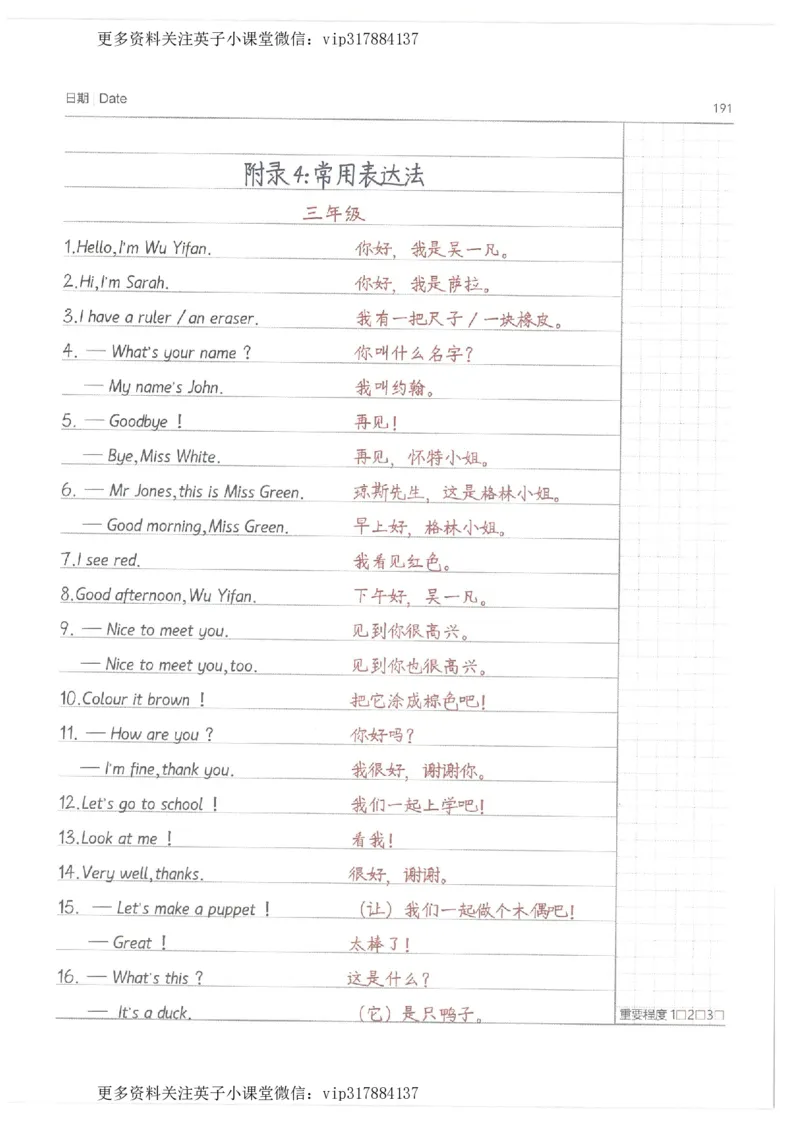 更多资料关注英子小课堂微信：vip317884137
日期 Date
191
附录4:常用表达法
三年级
1.Hello,I'm Wu Yifan. 你好，我是吴一凡。
2.Hi,I'm Sarah. 你好，我是萨拉。
3.I have a ruler / an eraser. 我有一把尺子/一块橡皮。
4. — What's your name ? 你叫什么名字？
— My name's John. 我叫约翰。
5. — Goodbye ! 再见！
— Bye,Miss White. 再见，怀特小姐。
6. — Mr Jones,this is Miss Green. 琼斯先生，这是格林小姐。
— Good morning,Miss Green. 早上好，格林小姐。
7.I see red. 我看见红色。
8.Good afternoon,Wu Yifan. 下午好，吴一凡。
9. — Nice to meet you. 见到你很高兴。
— Nice to meet you,too. 见到你也很高兴。
10.Colour it brown ! 把它涂成棕色吧！
11. — How are you ? 你好吗？
— I'm fine,thank you. 我很好，谢谢你。
12.Let's go to school ! 我们一起上学吧！
13.Look at me ! 看我！
14.Very well,thanks. 很好，谢谢。
15. — Let's make a puppet ! （让）我们一起做个木偶吧！
— Great ! 太棒了！
16. — What's this ? 这是什么？
— It's a duck. （它）是只鸭子。
重要程度 1□2□3□
更多资料关注英子小课堂微信：vip317884137